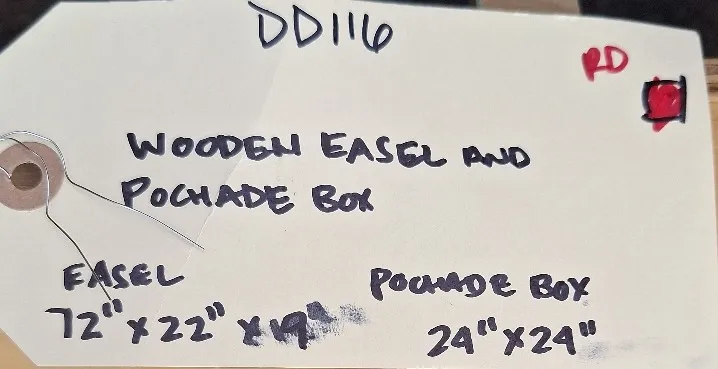 DD116
RD
WOODEN EASEL AND
POCHADE BOX
EASEL
72" x 22" x 19"
POCHADE BOX
24" x 24"